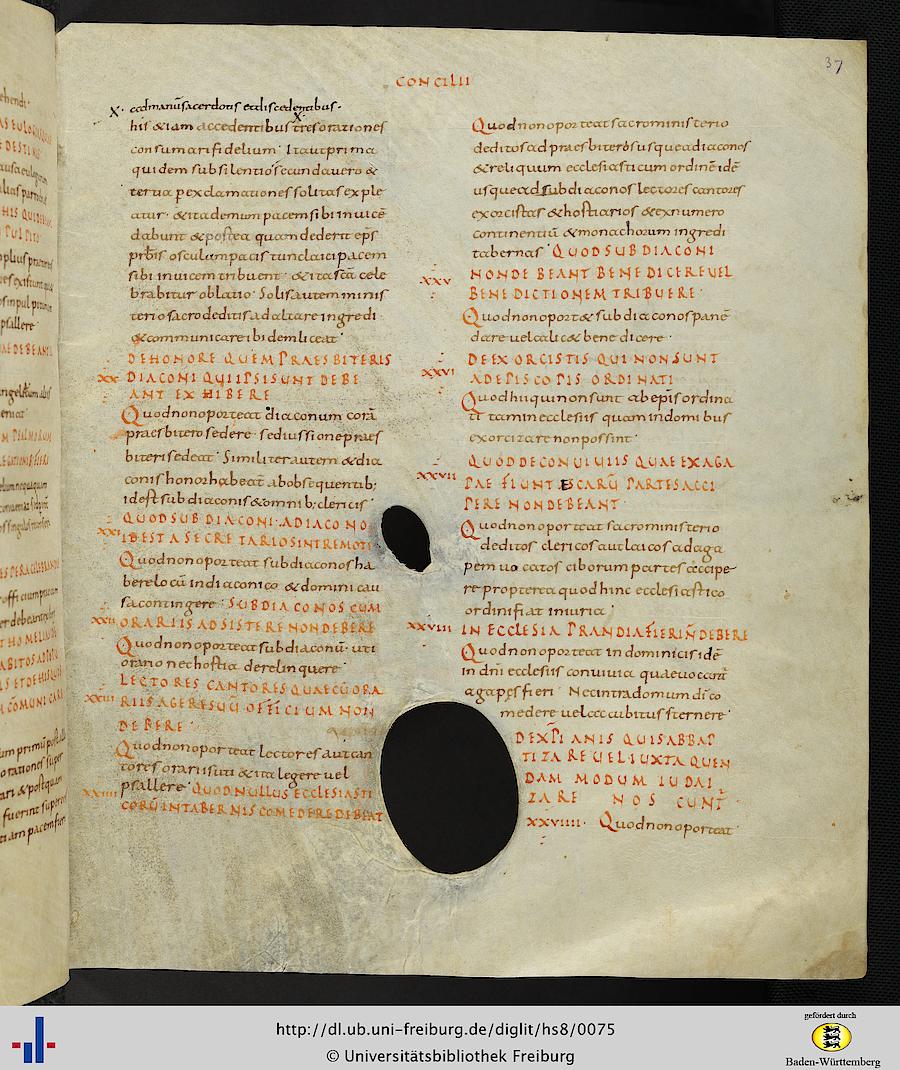 37
CONCILII
X. ad manū sacerdotis et discedentibus.
his &iam accedentibus tres orationes
consumari fidelium. Ita ut prima
quidem sub silentio secunda uero &
tertia p exclamationes solitas exple
atur. &ita demum pacem sibi inuicē
dabunt &postea quam dederit ep̄s
prb̄is osculum pacis tunc laici pacem
sibi inuicem tribuent. &ita sc̄a cele
brabitur oblatio. Solis autem minis
terio sacro deditis ad altare ingredi
&communicare ibidem liceat.
DE HONORE QUEM PRAESBITERIS
XX DIACONI QUI IPSI SUNT DEBE
ANT EXHIBERE
Quod non oporteat diaconum corā
praesbitero sedere sed iussione praes
biteri sedeat. Similiter autem &dia
conis honor habeat ab obsequentib;
idest subdiaconis &omnib; clericis
QUOD SUBDIACONI. A DIACONO
XXI IDEST A SECRETARIO SINT REMOTI
Quod non oporteat subdiaconos ha
bere locū in diaconico &domini cau
sa contingere. SUBDIACONOS CUM
XXII ORARIIS ADSISTERE NON DEBERE
Quod non oporteat subdiaconū. uti
orario nec hostia derelinquere.
LECTORES CANTORES QUAECŪ ORA
XXIII RIIS AGERE SUŪ OFFICIUM NON
DEBERE.
Quod non oporteat lectores aut can
tores orariis uti &ita legere uel
psallere. QUOD NULLUS ECCLESIASTI
XXIIII CORŪ IN TABERNIS COMEDERE DEBEAT
Quod non oporteat sacro ministerio
deditos ad praesbiterōs usque ad diaconos
&reliquum ecclesiasticum ordinē idē
usque ad subdiaconos lectores cantores
exorcistas &hostiarios &ex numero
continentiū &monachorum ingredi
tabernas. QUOD SUBDIACONI
XXV NON DEBEANT BENEDICERE UEL
BENEDICTIONEM TRIBUERE.
Quod non oport& subdiaconos panē
dare uel calicē benedicere.
DE EXORCISTIS QUI NON SUNT
XXVI AD EPISCOPIS ORDINATI
Quod hii qui non sunt ab epis ordina
ti tam in ecclesiis quam in domibus
exorcizare non possint.
QUOD DE CONUIUIIS QUAE EX AGA
XXVII PAE FIUNT ESCARŪ PARTES ACCI
PERE NON DEBEANT.
Quod non oporteat sacro ministerio
deditos clericos aut laicos ad aga
pem uocatos ciborum partes accipe
re propterea quod hinc ecclesiastico
ordini fiat iniuria.
XXVIII IN ECCLESIA PRANDIA FIERI Ñ DEBERE
Quod non oporteat in dominicis idē
in dn̄i ecclesiis conuiuia quae uocant̄
agapes fieri. Nec intra domum di co
medere uel accubitus sternere.
DE XP̄IANIS QUI SABBAT
TIZARE UEL IUXTA QUEN
DAM MODUM IUDAI
ZARE NOSCUNT.
XXVIIII. Quod non oporteat
http://dl.ub.uni-freiburg.de/diglit/hs8/0075
© Universitätsbibliothek Freiburg
gefördert durch
Baden-Württemberg